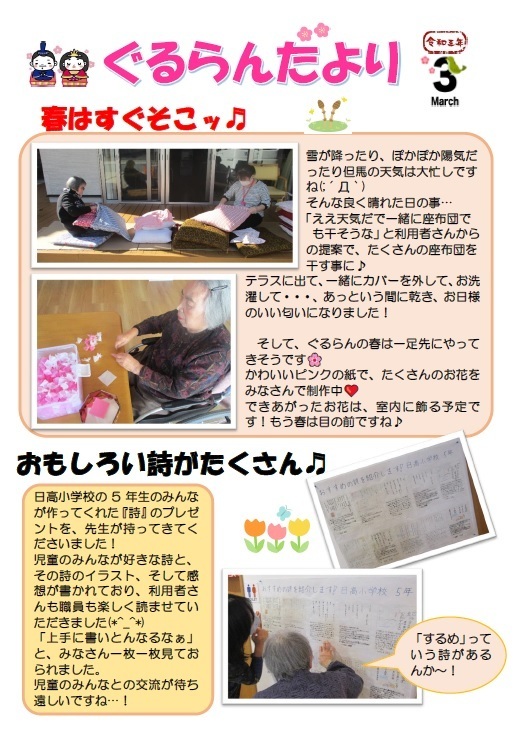 ぐるらんたより
令和五年
3
March
春はすぐそこッ♫
雪が降ったり、ぽかぽか陽気だ
ったり但馬の天気は大忙しです
ね(;´Д｀)
そんな良く晴れた日の事…
「ええ天気だで一緒に座布団で
も干そうな」と利用者さんから
の提案で、たくさんの座布団を
干す事に♪
テラスに出て、一緒にカバーを外して、お洗
濯して・・・、あっという間に乾き、お日様
のいい匂いになりました！
そして、ぐるらんの春は一足先にやって
きそうです🌸
かわいいピンクの紙で、たくさんのお花を
みなさんで制作中❤
できあがったお花は、室内に飾る予定で
す！もう春は目の前ですね♪
おもしろい詩がたくさん♫
日高小学校の５年生のみんな
が作ってくれた『詩』のプレゼ
ントを、先生が持ってきてく
ださいました！
児童のみんなが好きな詩と、
その詩のイラスト、そして感
想が書かれており、利用者さ
んも職員も楽しく読ませてい
ただきました(*^_^*)
「上手に書いとんなるなぁ」
と、みなさん一枚一枚見てお
られました。
児童のみんなとの交流が待ち
遠しいですね…！
おすすめの詩を紹介します! 日高小学校 5年
おすすめの詩を紹介します! 日高小学校 5年
「するめ」って
いう詩がある
んか～！